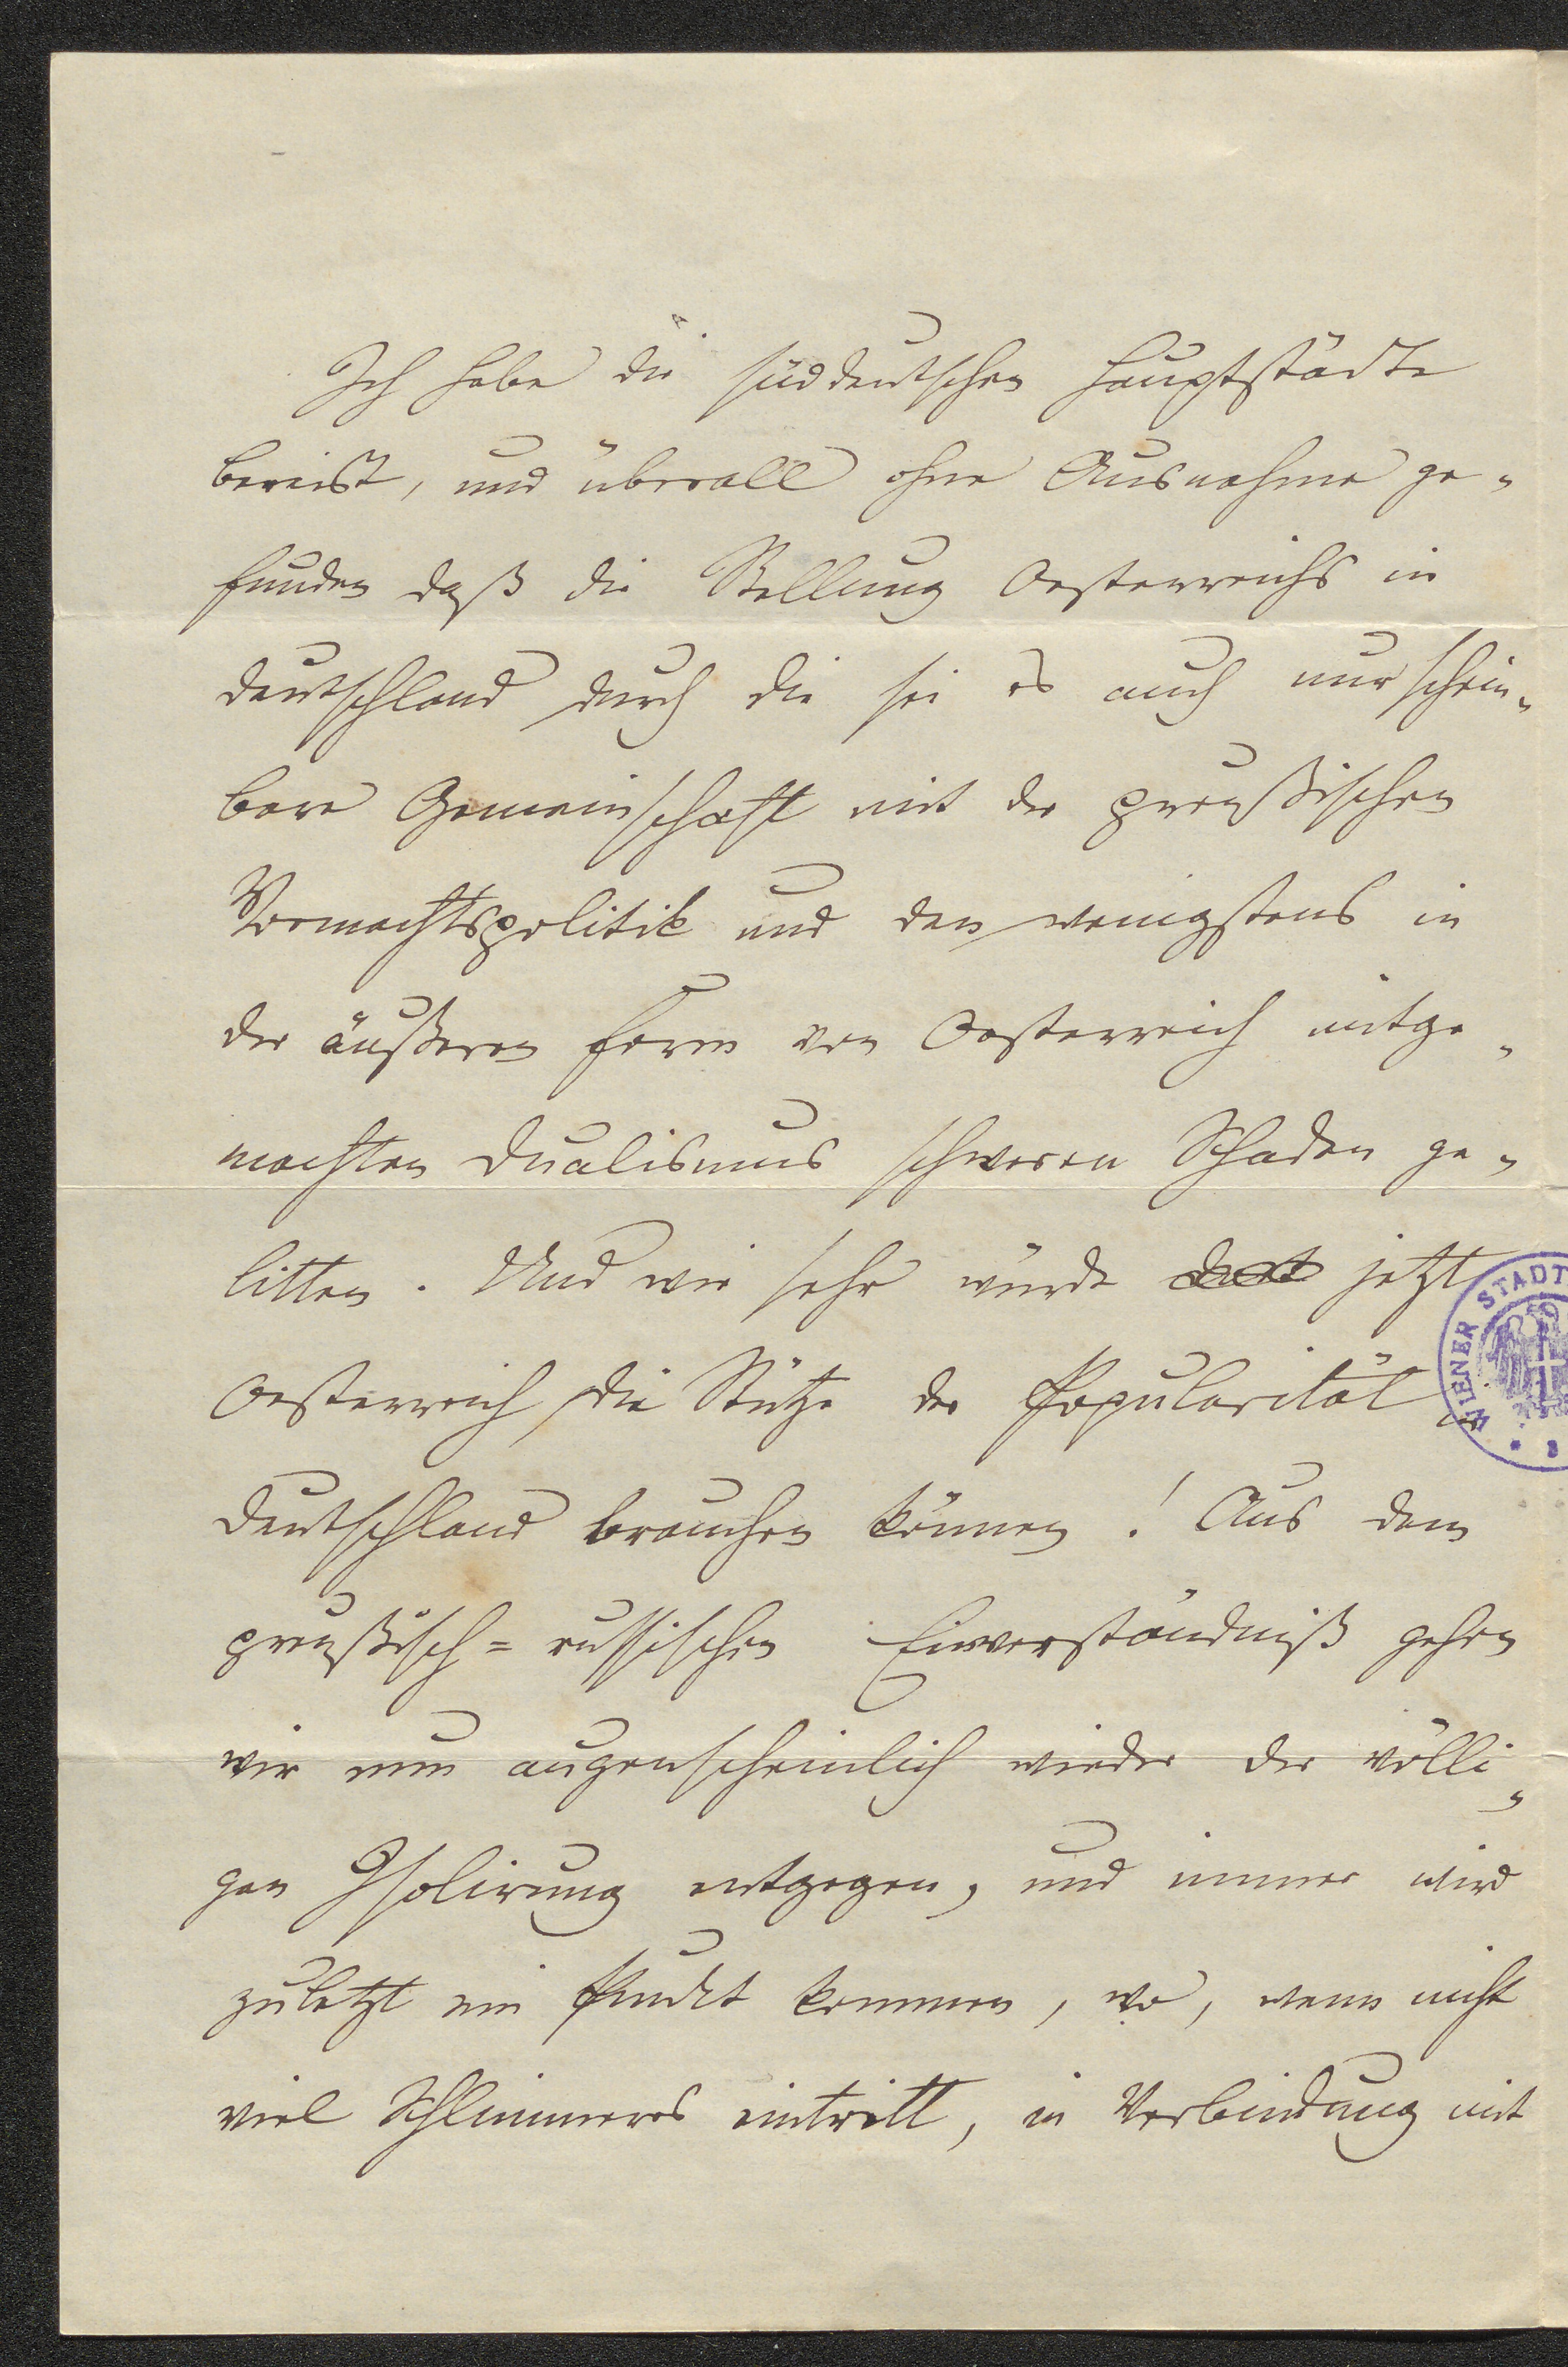 Ich habe die süddeutschen Hauptstädte
bereist, und überall ohne Ausnahme ge-
funden daß die Stellung Oesterreichs in
Deutschland durch die sei es auch nur schein-
bare Gemeinschaft mit der preußischen
Vormachtspolitik und den wenigstens in
der äußeren Form von Oesterreich mitge-
machten Dualismus schweren Schaden ge-
litten. Und wie sehr würde jetzt
Oesterreich die Stütze der Popularität in
Deutschland brauchen können! Aus dem
preußisch=russischen Einverständniß gehen
wir nun augenscheinlich wieder der völli-
gen Isolirung entgegen, und immer wird
zuletzt ein Punkt kommen, wo, wenn nicht
viel Schlimmeres eintritt, in Verbindung mit
WIENER STADT